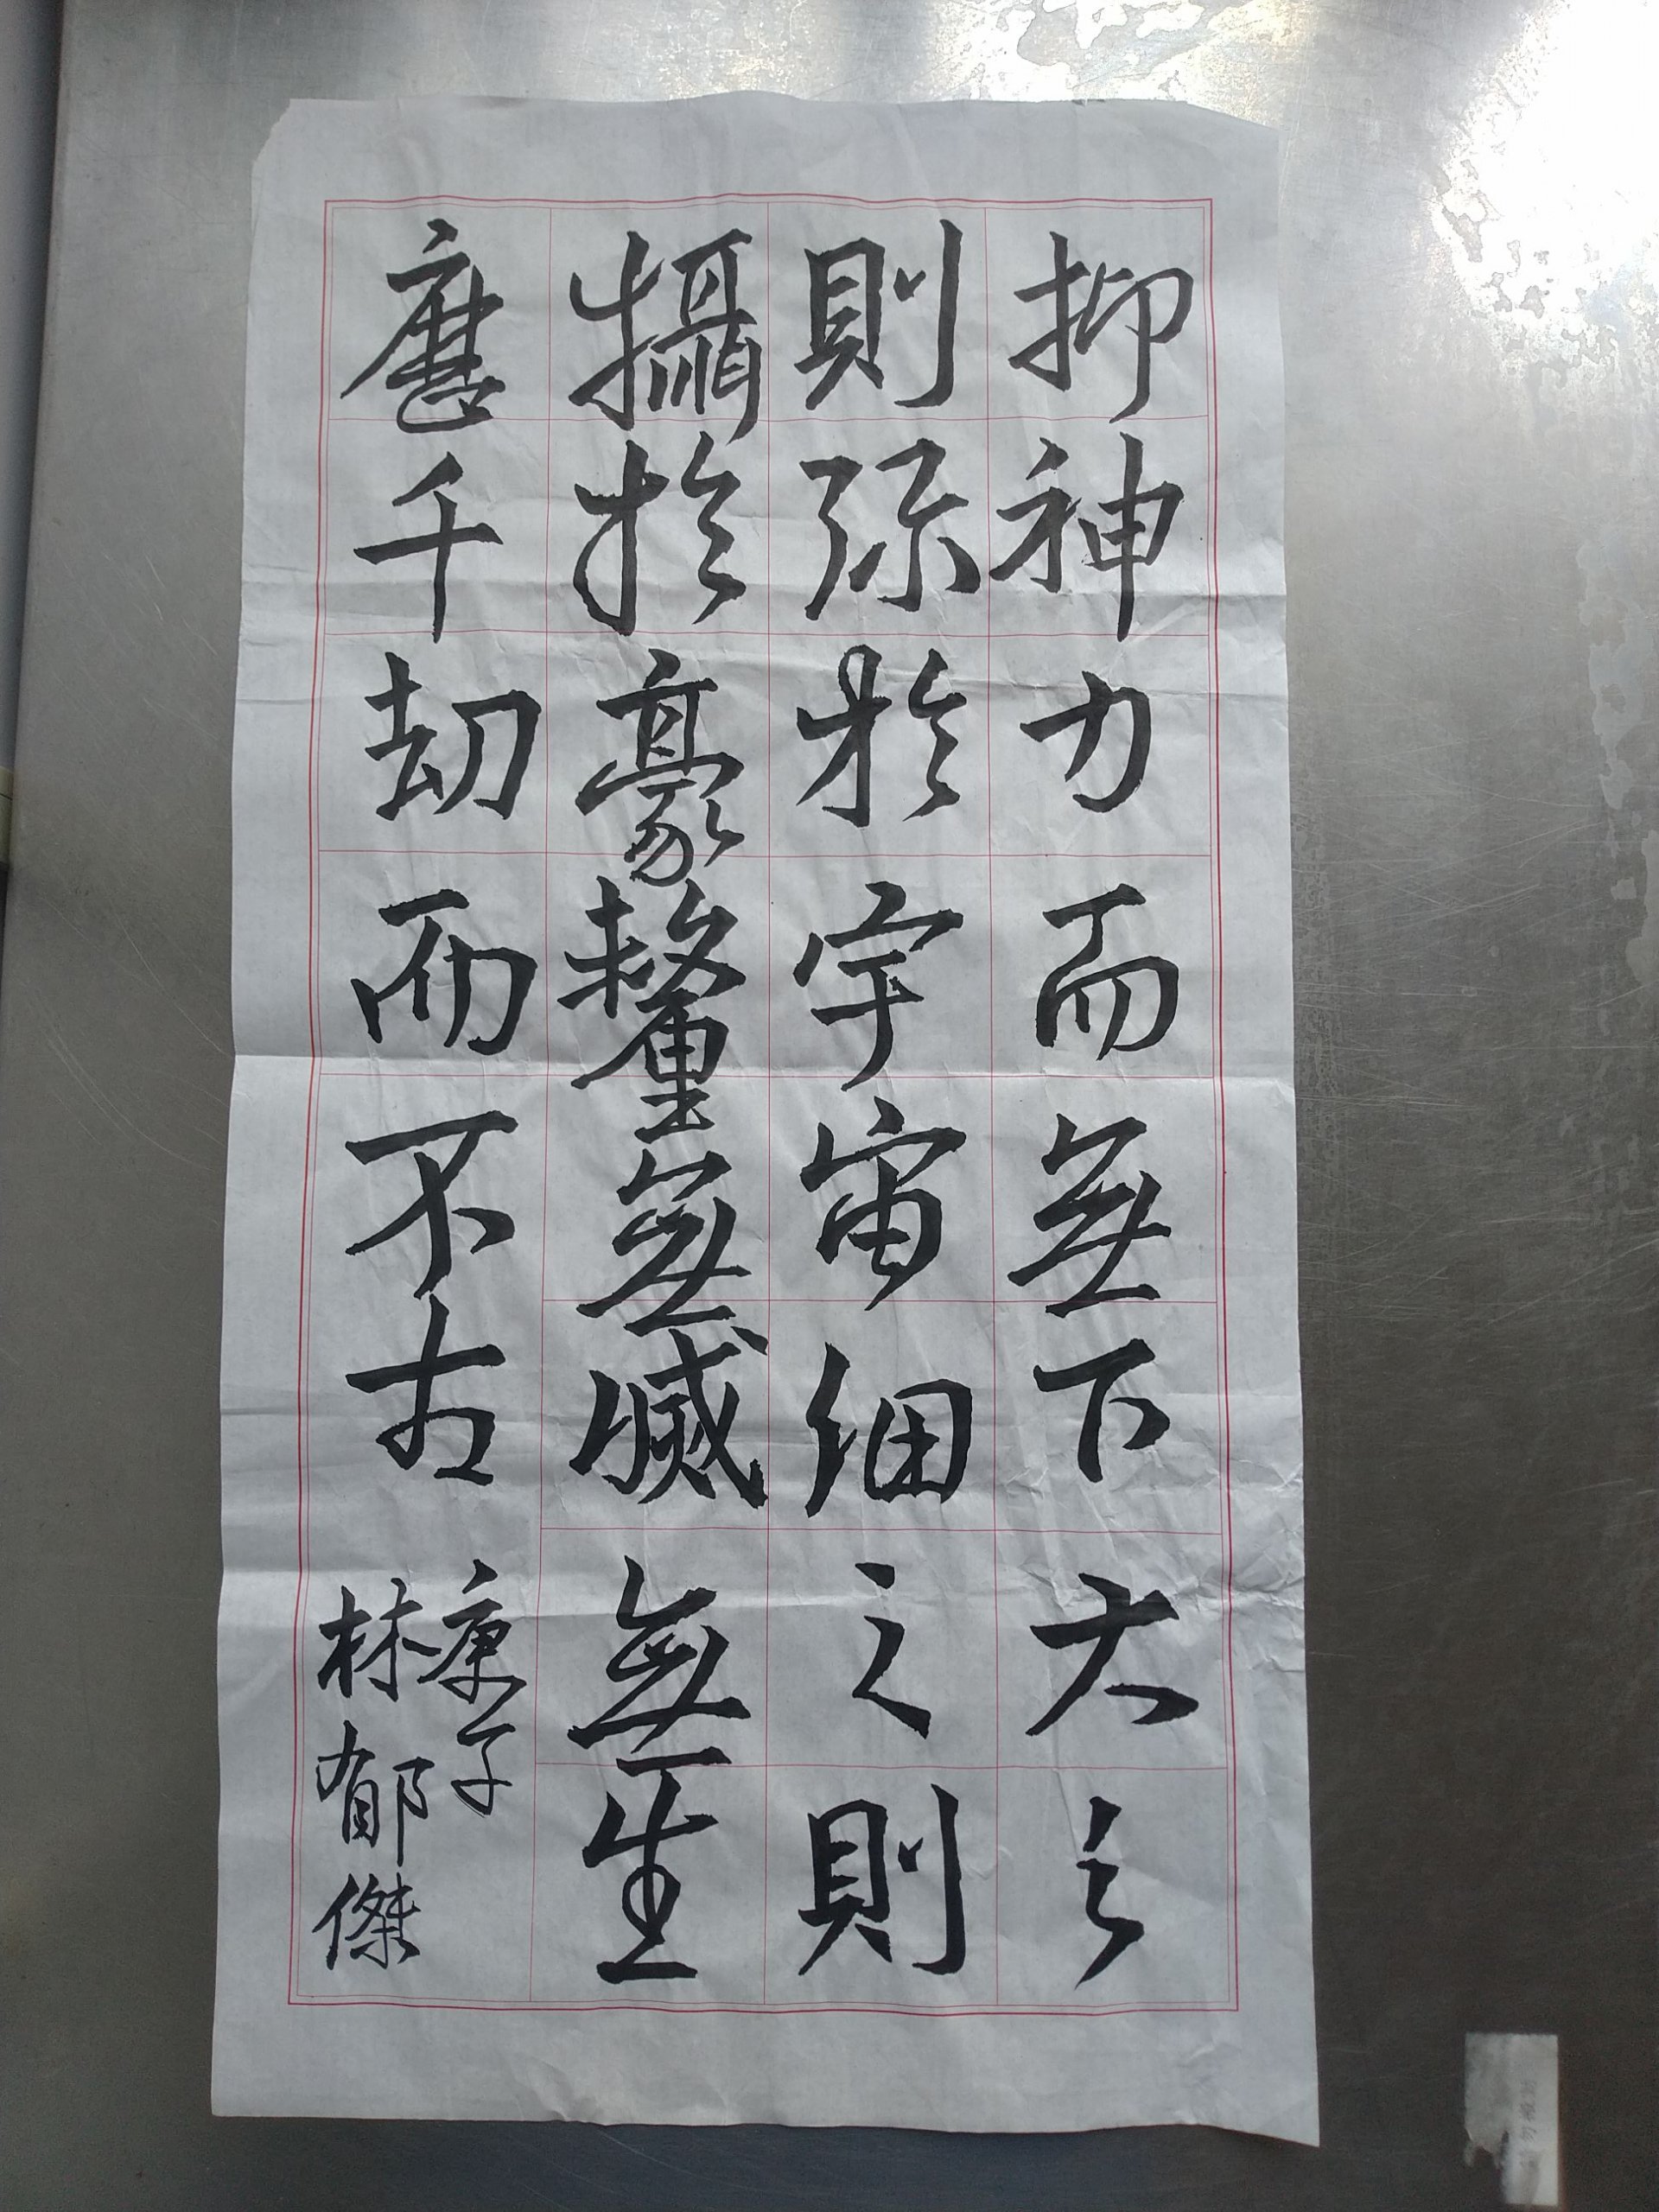 抑神力而無下大之
則弥於宇宙細之則
攝於豪釐無滅無生
歷千劫而不古
庚子
林郁傑